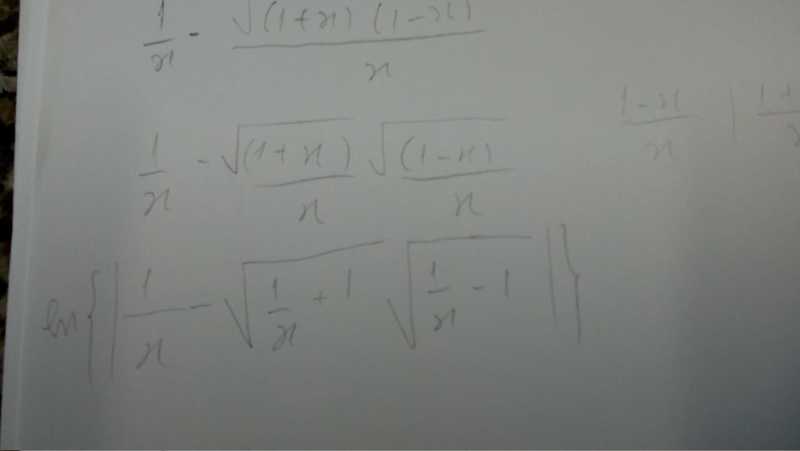 1/x - √((1+x)(1-x))/x
1/x - √((1+x)/x) √((1-x)/x)
1-x/x | 1+
ln{|1/x - √(1/x + 1) √(1/x - 1)|}